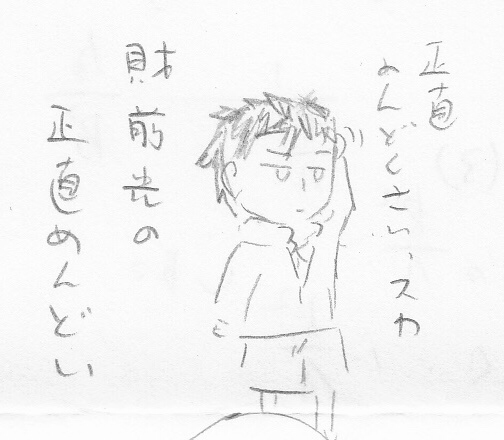 正直
めんどくさいッスわ
財前光の
正直めんどい